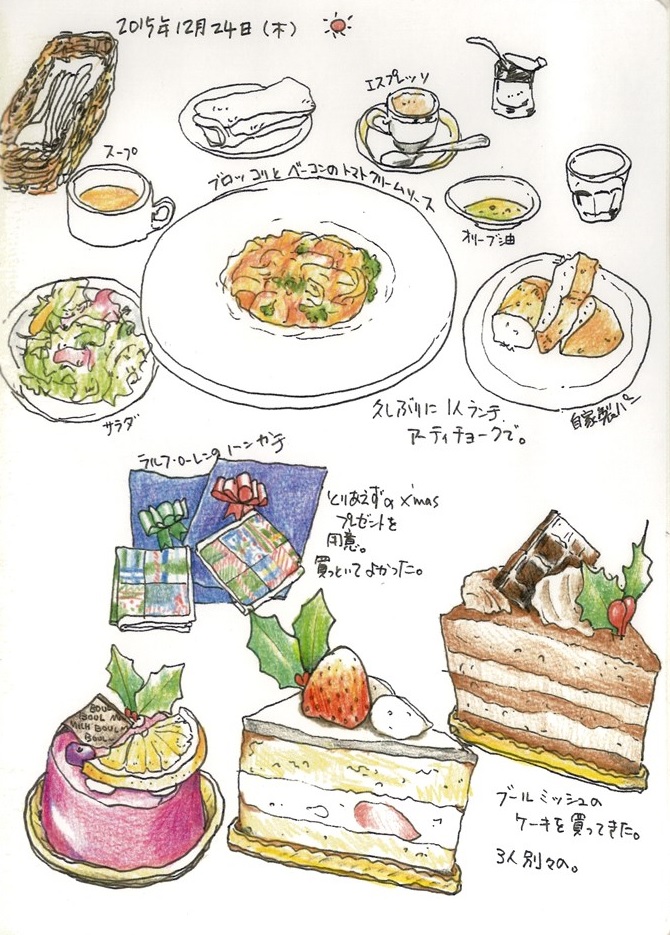 2015年12月24日(木)
エスプレッソ
スープ
ブロッコリとベーコンのトマトクリームソース
オリーブ油
サラダ
自家製パン
久しぶりに1人ランチ
アーティチョークで。
ラルフ・ローレンのハンカチ
とりあえずのX'mas
プレゼントを
用意。
買っといてよかったこ。
BOUL
BOUL M
MICH BOUL M
BOUL
ブールミッシュの
ケーキを買ってきた。
3人別々の。